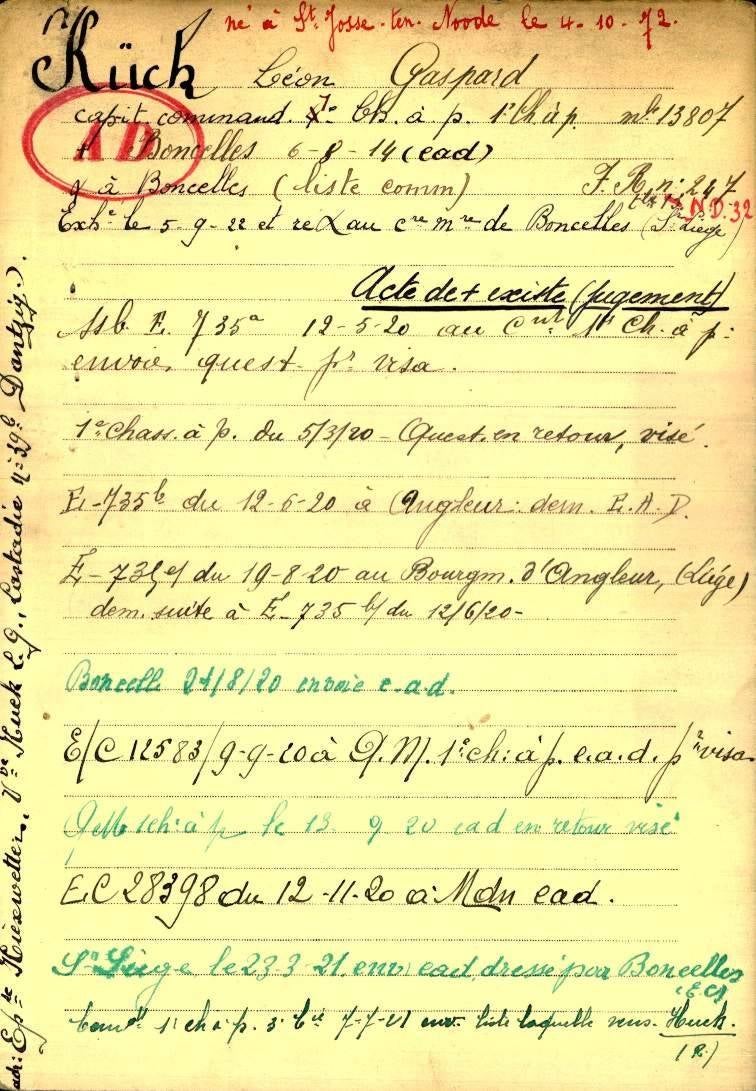 né à St Josse-ten-Noode le 4-10-72.
Kück Léon Gaspard
capit. command. Ch. à p. 1e Ch à p. mle 13807
AD
+ Boncelles 6-8-14 (ead)
à Boncelles (liste comm) F.R. n: 247
N.D. 32
Exhé le 5-9-22 et re au cre mre de Boncelles (Sr Liège)
Acte de + existe (jugement)
E. 735a 12-5-20 au 1er Ch. à p:
envoie quest. pr visa.
1e Chass. à p. du 5/3/20 - Quest. en retour, visé.
E-735b du 12-6-20 à Angleur: dem. E.A.D.
E-735 c/ du 19-8-20 au Bourgm. d'Angleur, (Liége)
dem. suite à E-735 b/ du 12/6/20-
Boncelle 21/8/20 envoie e.a.d.
E/C 12583/9-9-20 à Q.M. 1e ch: à p. e.a.d. pr visa
QM 1 ch: à p le 13 9 20 ead en retour visé
E.C 28398 du 12-11-20 à Mdn ead.
Sr Liège le 23-3-21. env. ead, dressé par Boncelles
(EC)
1e ch. à p. 3e 7-7-21 env. liste laquelle rens. Huck.
(R.)
adr: Ep. de Vve Huck L.G., Lastadie n: 39b Dantzig.